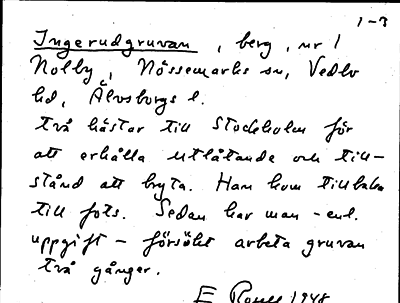 1-3
Ingerudgruvan, berg, nr 1
Nolby, Nössemarks sn, Vedbo
hd, Älvsborgs l.
två hästar till Stockholm för
att erhålla utlåtande och till-
stånd att bryta. Han kom tillbaka
till fots. Sedan har man - enl.
uppgift - försökt arbeta gruvan
två gånger.
E 1948